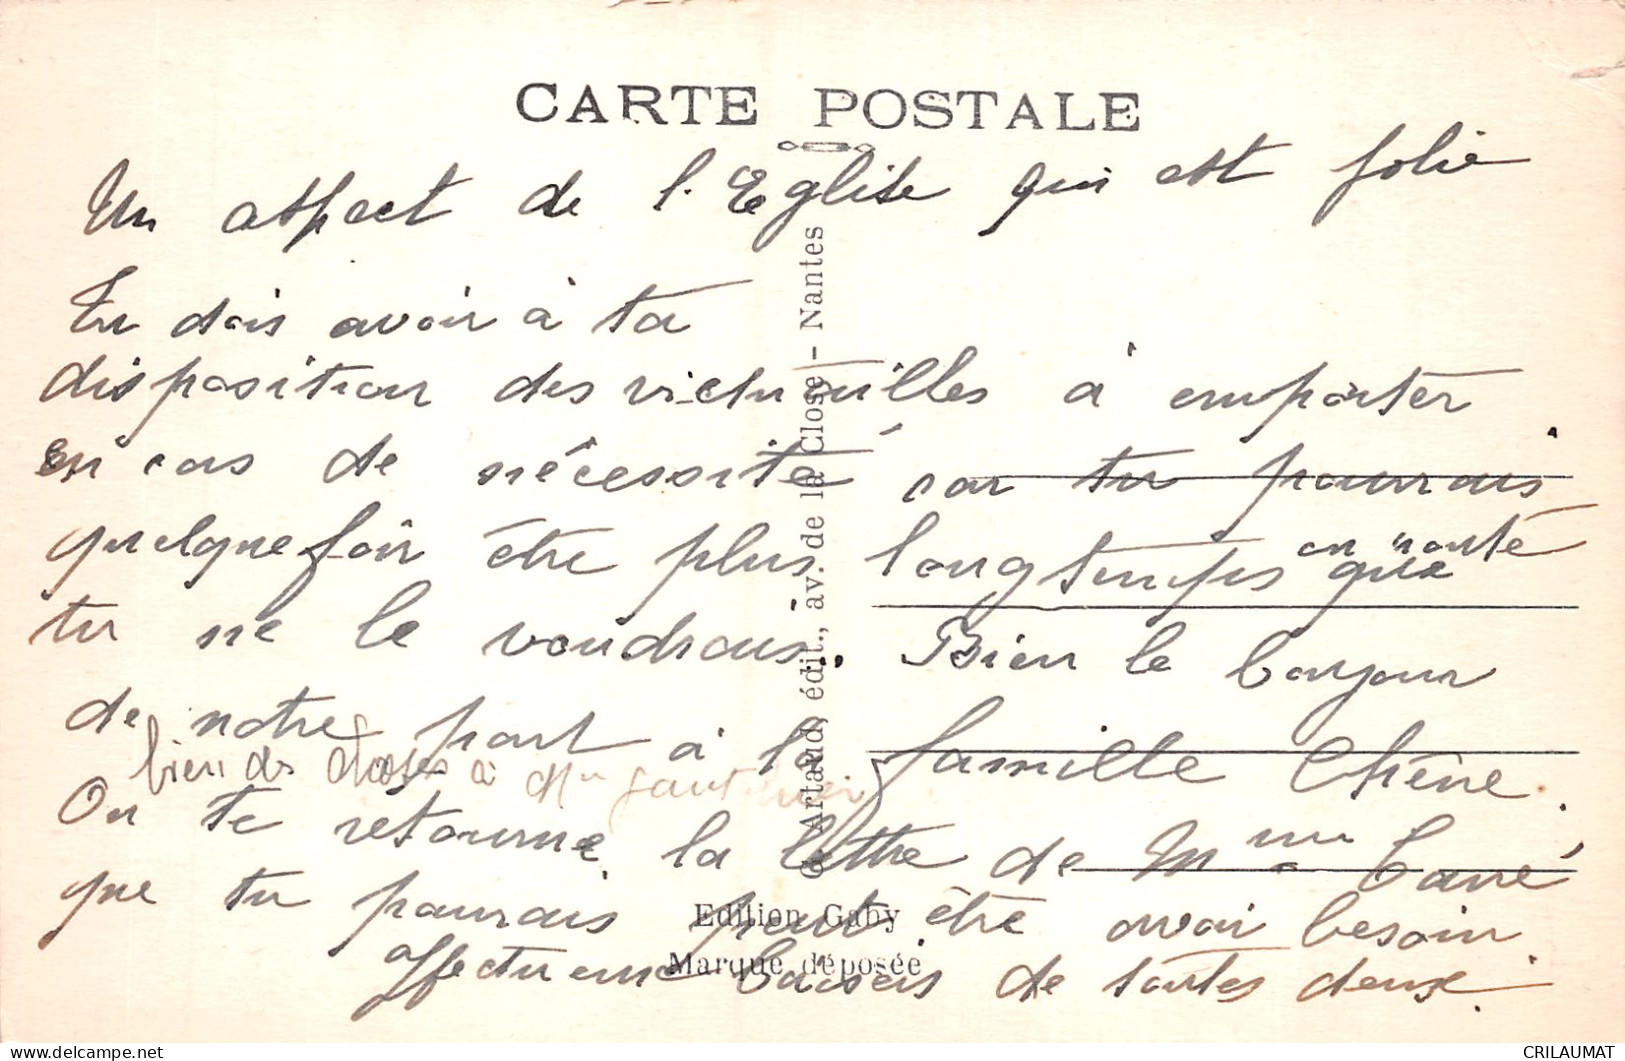 CARTE POSTALE
Un aspect de l'Eglise qui est jolie
Tu dois avoir à ta
disposition des victuailles à emporter
en cas de nécessité car tu pourrais
quelquefois être plus longtemps en route que
tu ne le voudrais. Bien le bonjour
de notre part à la famille Chêne.
bien des choses à Mme Gauthier
On te retourne la lettre de Mme Carré
que tu pourrais peut être avoir besoin
Affectueux baisers de toutes deux.
G. Artaud, édit., av. de la Close - Nantes
Edition Gaby
Marque déposée
CRILAUMAT